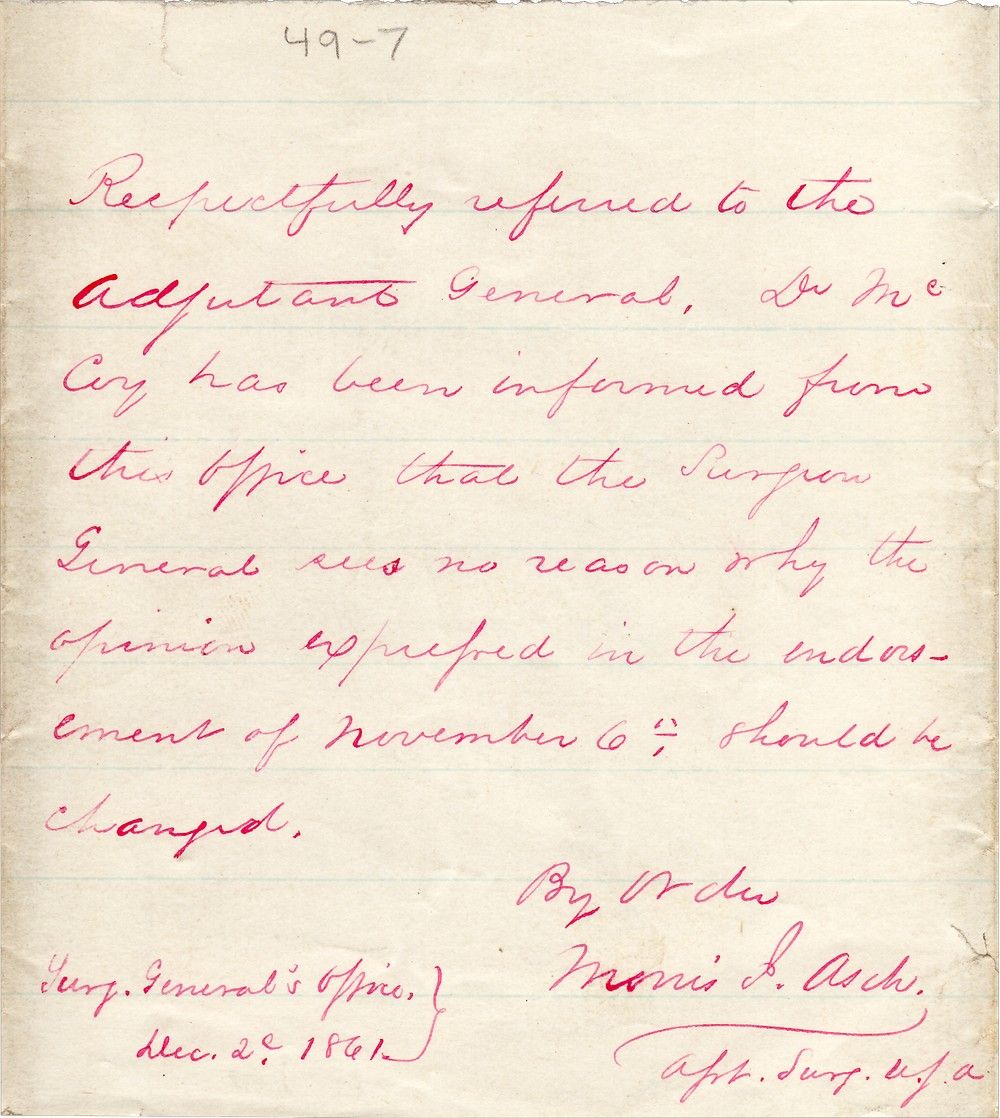 49-7
Respectfully referred to the
Adjutant General. Dr Mc
Coy has been informed from
this Office that the Surgeon
General sees no reason why the
opinion expressed in the endors-
ement of November 6" should be
changed.
By Order
Morris J. Asch.
Asst. Surg. U.S.A
Surg. General's Office,
Dec. 2d 1861.